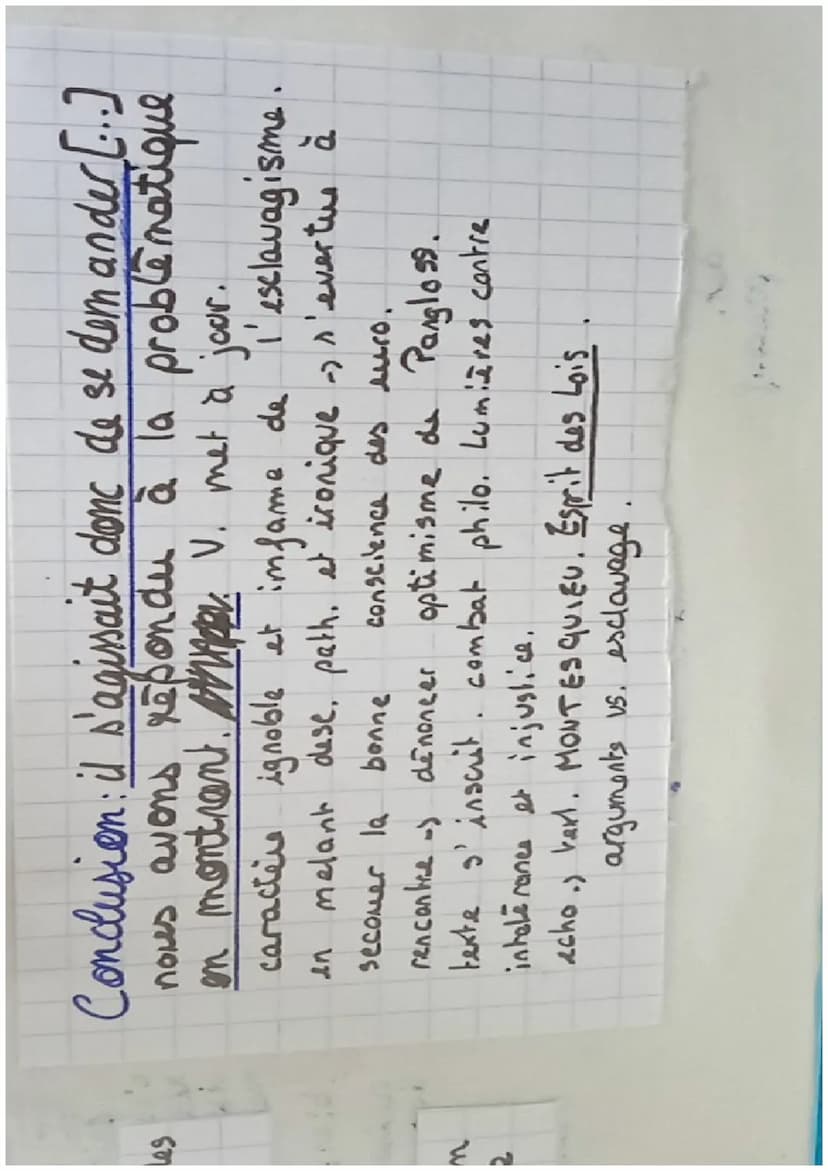 Conclusion: il s'agissait donc de se demander [...]
nous avons répondu à la problématique
en montrant. V. met à jour.
caractère ignoble et infame de l'esclavagisme.
en melant desc. path. et ironique -> s'evertue à
secouer la bonne conscience des euro.
rencontre -> dénoncer optimisme de Pangloss.
texte s'inscrit. combat philo. Lumières contre
intolérance et injustice.
echo -> text. MONTESQUIEU. Esprit des Lois.
arguments vs. esclavage.
les
n
2